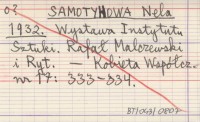 o2 SAMOTYHOWA Nela
1932. Wystawa Instytutu
Sztuki. Rafał Malczewski
i Ryt. — Kobieta Współcz.
nr 17: 333-334.
BT/063/0807